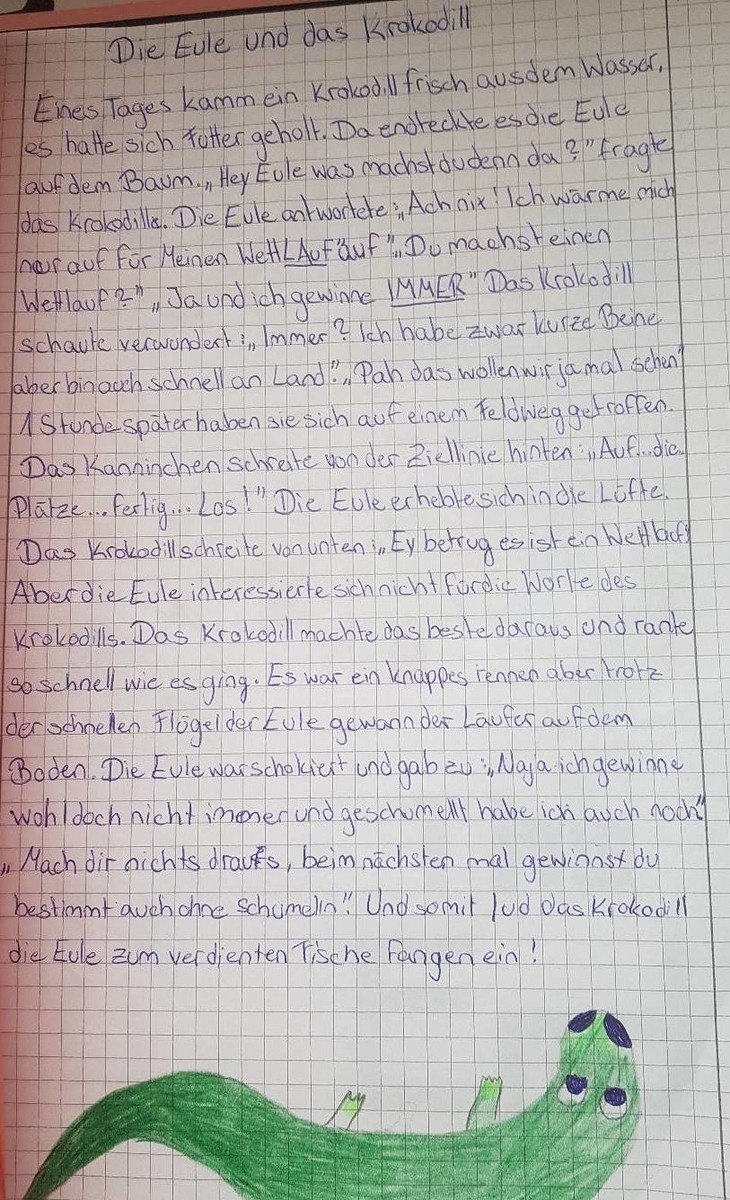 Die Eule und das Krokodill
Eines Tages kamm ein Krokodill frisch aus dem Wasser,
es hatte sich futter geholt. Da endteckte es die Eule
auf dem Baum. „Hey Eule was machst du denn da?" fragte
das Krokodills. Die Eule antwortete: „Ach nix! Ich wärme mich
nur auf für Meinen WettLAuf auf". „Du machst einen
Wettlauf?" „Ja und ich gewinne IMMER" Das Krokodill
schaute verwundert: „Immer? Ich habe zwar kurze Beine
aber bin auch schnell an Land!" „Pah das wollen wir ja mal sehen"
1 Stunde später haben sie sich auf einem Feldweg getroffen.
Das Kanninchen schreite von der Ziellinie hinten: „Auf...die
Plätze... fertig... Los!" Die Eule erhebte sich in die Lüfte.
Das Krokodill schreite von unten: „Ey betrug es ist ein Wettlauf"
Aber die Eule interessierte sich nicht für die Worte des
Krokodills. Das Krokodill machte das beste daraus und rante
so schnell wie es ging. Es war ein knappes rennen aber trotz
der schnellen Flügel der Eule gewann der Läufer auf dem
Boden. Die Eule war schokiert und gab zu: „Naja ich gewinne
wohl doch nicht immer und geschumellt habe ich auch noch"
„Mach dir nichts draus, beim nächsten mal gewinnst du
bestimmt auch ohne schumeln". Und somit lud das Krokodill
die Eule zum verdienten Fische fangen ein!